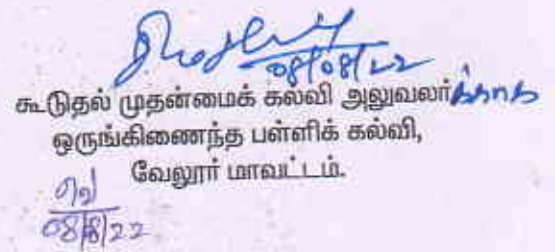 08/08/22
கூடுதல் முதன்மைக் கல்வி அலுவலர்க்காக
ஒருங்கிணைந்த பள்ளிக் கல்வி,
வேலூர் மாவட்டம்.
08/8/22